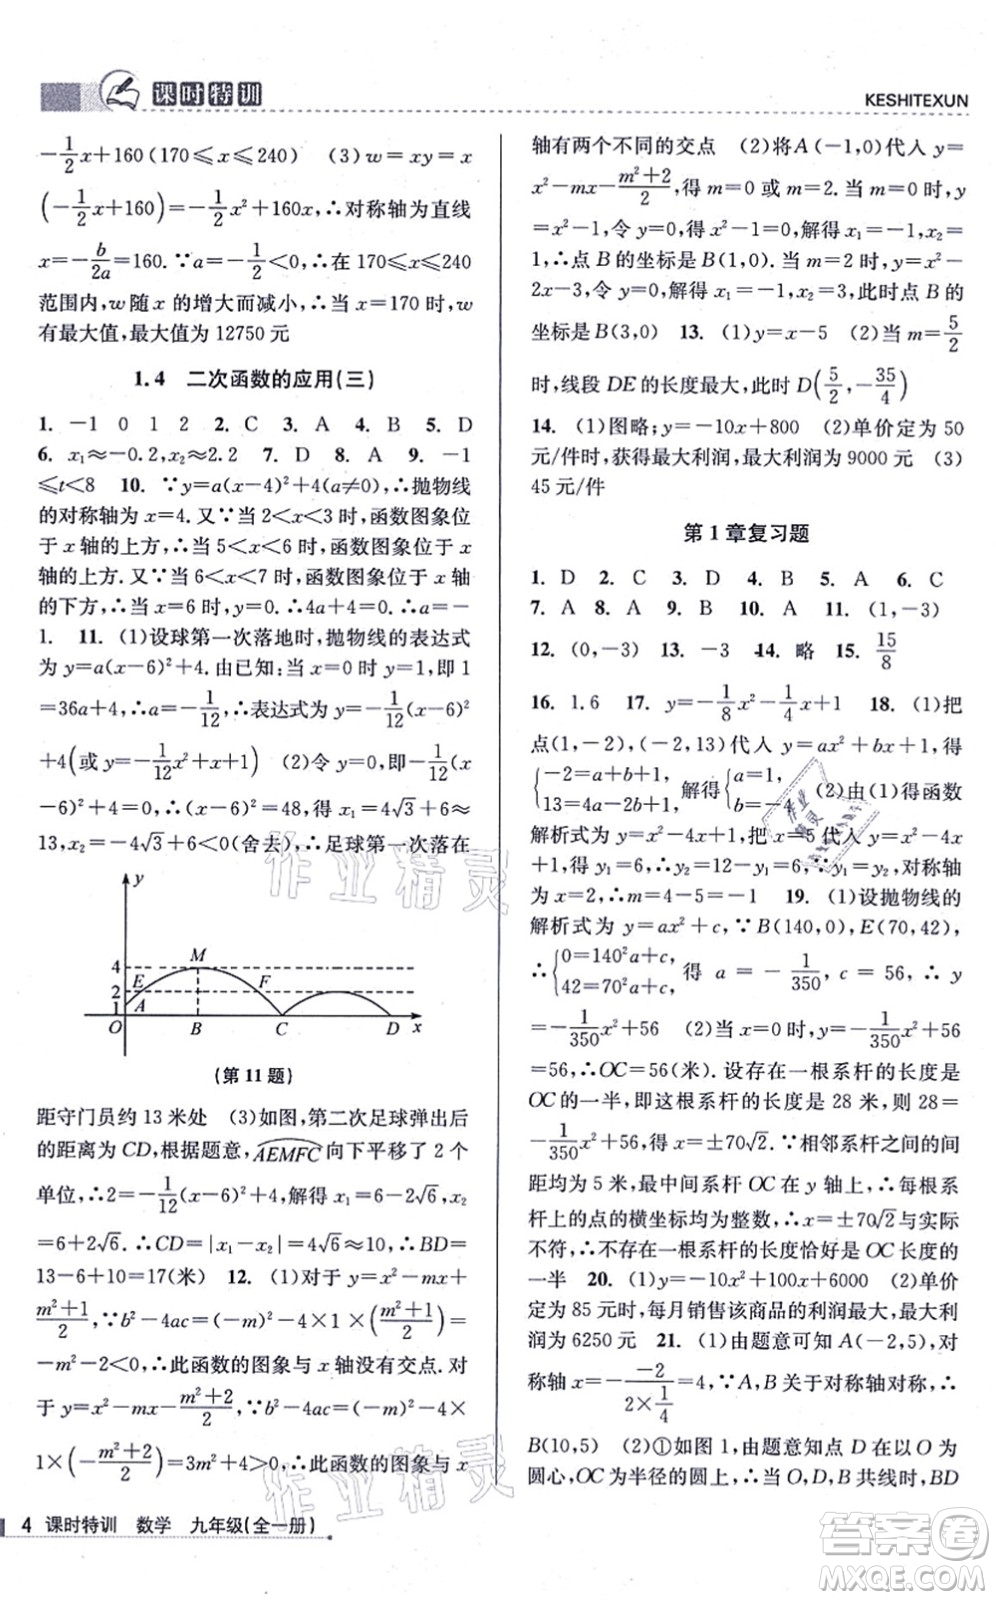 课时特训
KESHITEXUN
-1/2x+160(170⩽x⩽240) (3)w=xy=x
(-1/2x+160)=-1/2x²+160x,∴对称轴为直线
x=-b/2a=160.∵a=-1/2<0,∴在 170⩽x⩽240
范围内,w 随 x 的增大而减小,∴当 x=170 时,w
有最大值,最大值为 12750 元
1.4 二次函数的应用(三)
1. -1 0 1 2 2. C 3. A 4. B 5. D
6. x₁≈-0.2,x₂≈2.2 7. D 8. A 9. -1
⩽t<8 10. ∵y=a(x-4)²+4(a≠0),∴抛物线
的对称轴为 x=4.又∵当 2<x<3 时,函数图象位
于 x 轴的上方,∴当 5<x<6 时,函数图象位于 x
轴的上方.又∵当 6<x<7 时,函数图象位于 x 轴
的下方,∴当 x=6 时,y=0.∴4a+4=0.∴a=-
1. 11. (1)设球第一次落地时,抛物线的表达式
为 y=a(x-6)²+4.由已知:当 x=0 时 y=1,即 1
=36a+4,∴a=-1/12,∴表达式为 y=-1/12(x-6)²
+4(或 y=-1/12x²+x+1) (2)令 y=0,-1/12(x
-6)²+4=0,∴(x-6)²=48,得 x₁=4√3+6≈
13,x₂=-4√3+6(舍去),∴足球第一次落在
y
4
2
1
E
A
M
F
O
B
C
D
x
(第 11 题)
距守门员约 13 米处 (3)如图,第二次足球弹出后
的距离为 CD,根据题意,AEMFC 向下平移了 2 个
单位,∴2=-1/12(x-6)²+4,解得 x₁=6-2√6,x₂
=6+2√6.∴CD=|x₁-x₂|=4√6≈10,∴BD=
13-6+10=17(米) 12. (1)对于 y=x²-mx+
m²+1/2,∵b²-4ac=(-m)²-4×1×(m²+1/2)=
-m²-2<0,∴此函数的图象与 x 轴没有交点.对
于 y=x²-mx-m²+2/2,∵b²-4ac=(-m)²-4×
1×(-m²+2/2)=3m²+4>0,∴此函数的图象与 x
轴有两个不同的交点 (2)将A(-1,0)代入 y=
x²-mx-m²+2/2,得 m=0 或 m=2.当 m=0 时,y
=x²-1,令 y=0,得 x²-1=0,解得 x₁=-1,x₂=
1,∴点 B 的坐标是 B(1,0);当 m=2 时,y=x²-
2x-3,令 y=0,解得 x₁=-1,x₂=3,此时点 B 的
坐标是 B(3,0) 13. (1)y=x-5 (2)当 m=5/2
时,线段 DE 的长度最大,此时 D(5/2,-35/4)
14. (1)图略;y=-10x+800 (2)单价定为 50
元/件时,获得最大利润,最大利润为 9000 元 (3)
45 元/件
第 1 章复习题
1. D 2. C 3. D 4. B 5. A 6. C
7. A 8. A 9. B 10. A 11. (1,-3)
12. (0,-3) 13. -3 14. 略 15. 15/8
16. 1.6 17. y=-1/8x²-1/4x+1 18. (1)把
点(1,-2),(-2,13)代入 y=ax²+bx+1,得
{-2=a+b+1, 13=4a-2b+1, 解得{a=1, b=-4 (2)由(1)得函数
解析式为 y=x²-4x+1,把 x=5 代入 y=x²-4x
+1,得 y₁=6,∴y₁=y₂.∵y₁=y₂,对称轴
为 x=2,∴m=4-5=-1 19. (1)设抛物线的
解析式为 y=ax²+c,∵B(140,0),E(70,42),
∴{0=140²a+c, 42=70²a+c, 得 a=-1/350,c=56,∴y
=-1/350x²+56 (2)当 x=0 时,y=-1/350x²+56
=56,∴OC=56(米).设存在一根系杆的长度是
OC 的一半,即这根系杆的长度是 28 米,则 28=
-1/350x²+56,∴x=±70√2.∵相邻系杆之间的间
距均为 5 米,最中间系杆 OC 在 y 轴上,∴每根系
杆上的点的横坐标均为整数,∴x=±70√2与实际
不符,∴不存在一根系杆的长度恰好是 OC 长度的
一半 20. (1)y=-10x²+100x+6000 (2)单价
定为 85 元时,每月销售该商品的利润最大,最大利
润为 6250 元 21. (1)由题意可知 A(-2,5),对
称轴 x=--2/2×1/4=4,∵A,B 关于对称轴对称,∴
B(10,5) (2)①如图 1,由题意知点 D 在以 O 为
圆心,OC 为半径的圆上,∴当 O,D,B 共线时,BD
4 课时特训 数学 九年级(全一册)
作业精灵
作业精灵
作业精灵
答案圈
MXQE.COM